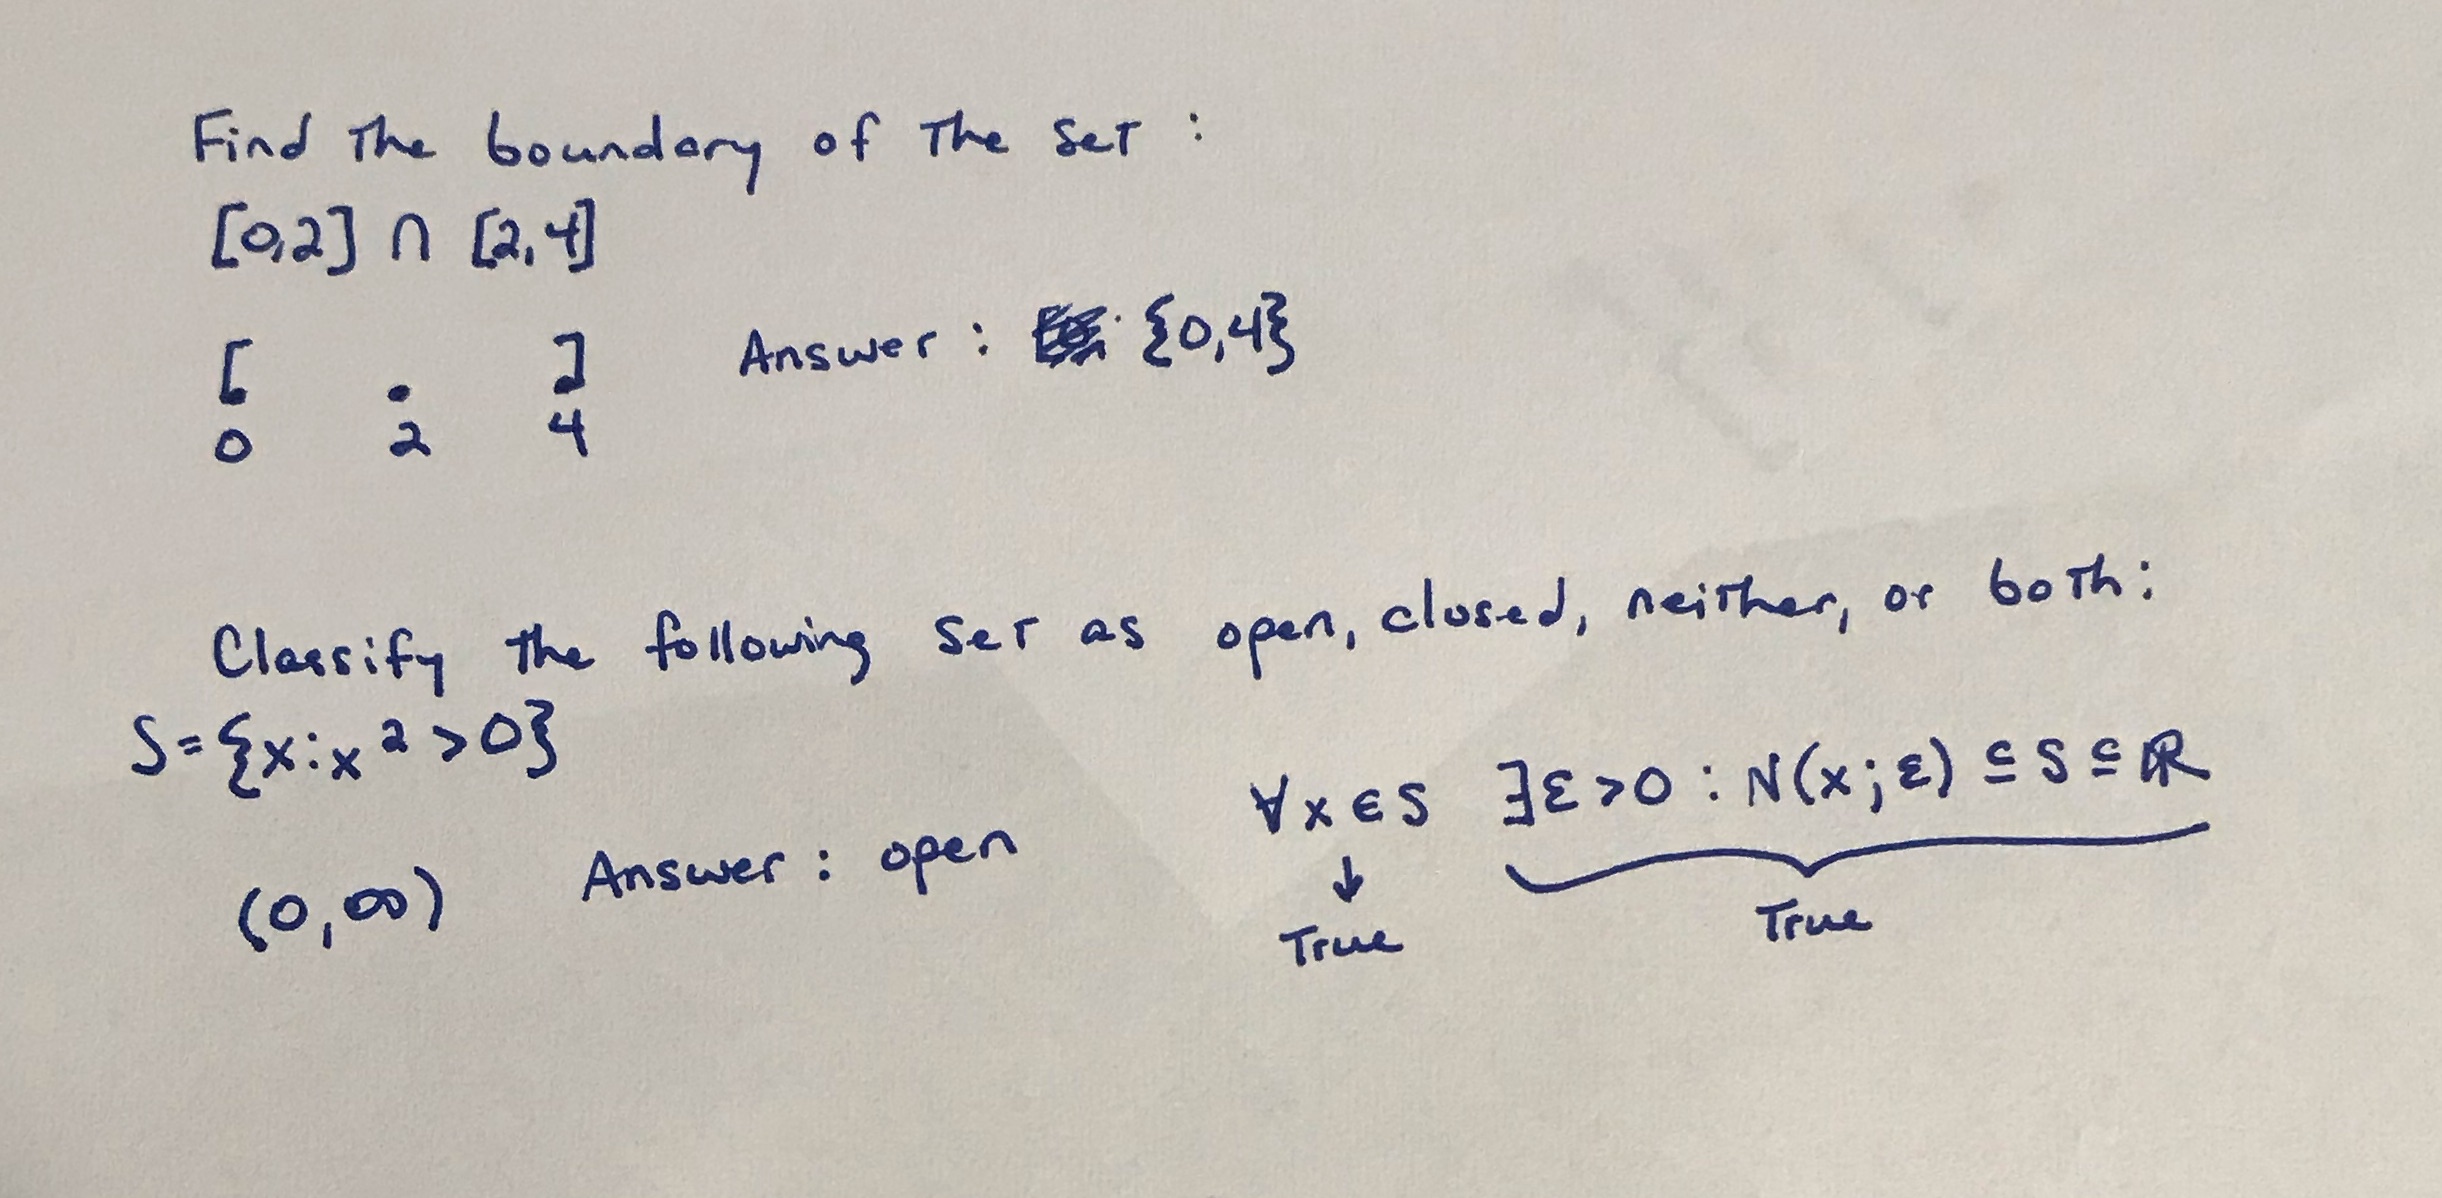 Find the boundary of the set :
[0,2] ∩ [2,4]
[ . ]
0 2 4
Answer : {0,4}
Classify the following set as open, closed, neither, or both:
S={x:x²>0}
(0,∞) Answer : open
∀x∈S ∃ε>0 : N(x;ε) ⊆ S ⊆ ℝ
↓
True True